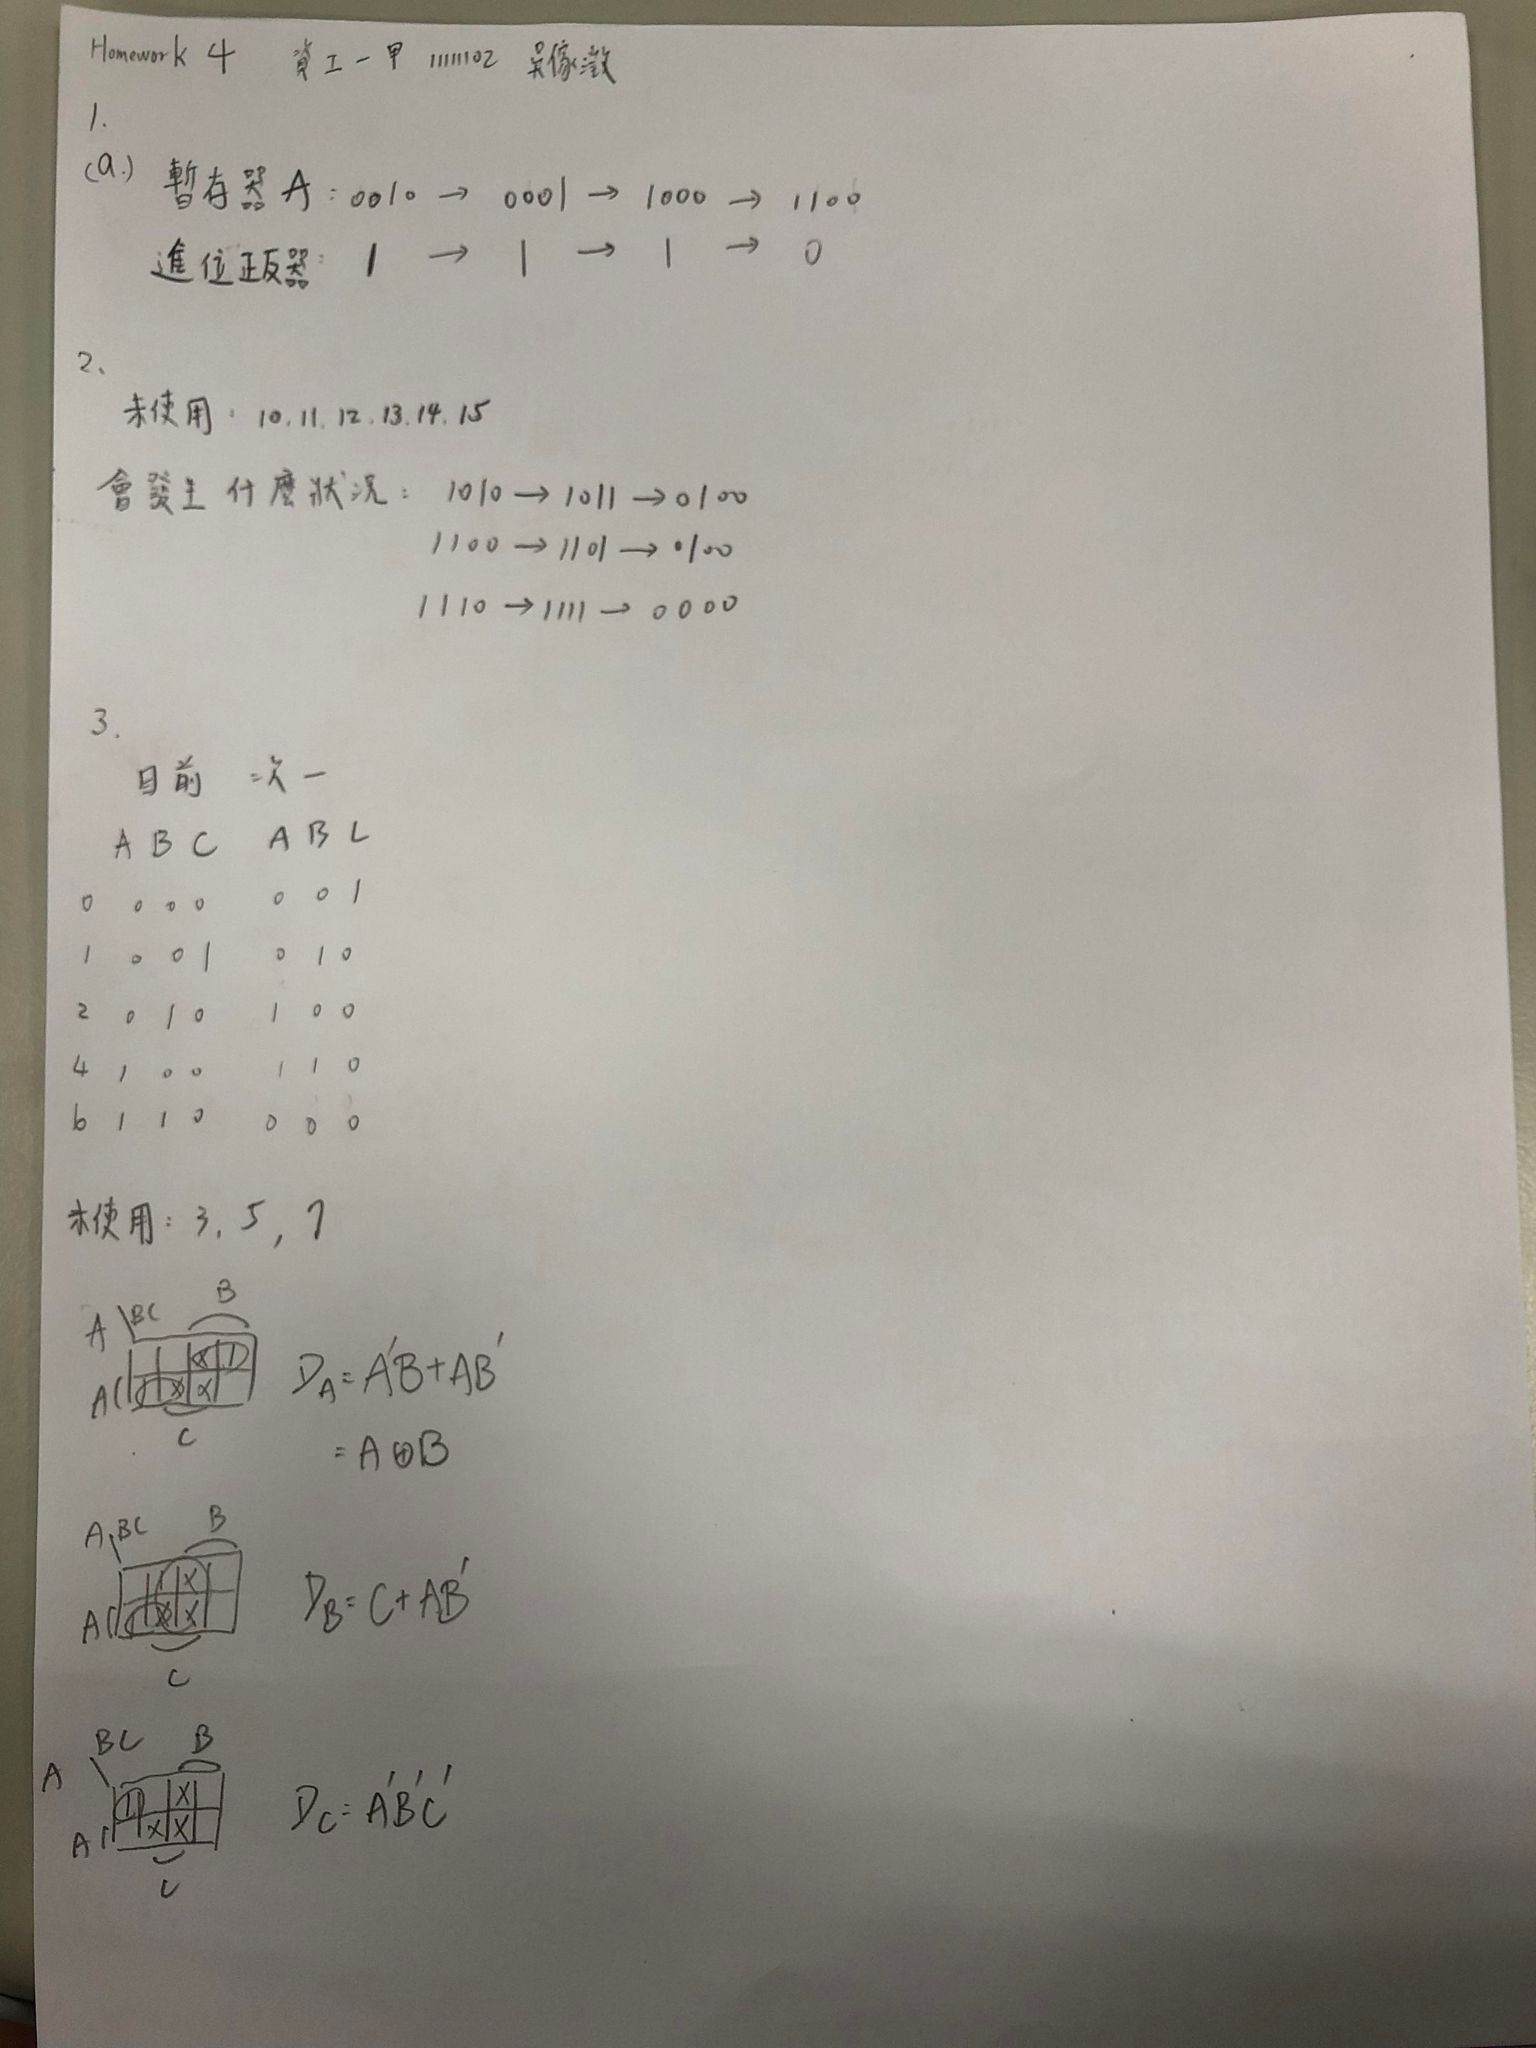 Homework 4 資工一甲 1111102 吳傢澂
1.
(a.) 暫存器A:0010 → 0001 → 1000 → 1100
進位正反器: 1 → 1 → 1 → 0
2、
未使用: 10.11.12.13.14.15
會發生什麼狀況: 1010 → 1011 → 0100
1100 → 1101 → 0100
1110 → 1111 → 0000
3.
目前 次一
A B C A B C
0 0 0 0 0 0 1
1 0 0 1 0 1 0
2 0 1 0 1 0 0
4 1 0 0 1 1 0
6 1 1 0 0 0 0
未使用: 3, 5, 7
A BC B
X 1
A 1 X X
C
DA = A'B + AB'
= A⊕B
A BC B
1 X
A 1 X X
C
DB = C + AB'
A BC B
1 X
A X X
C
DC = A'B'C'